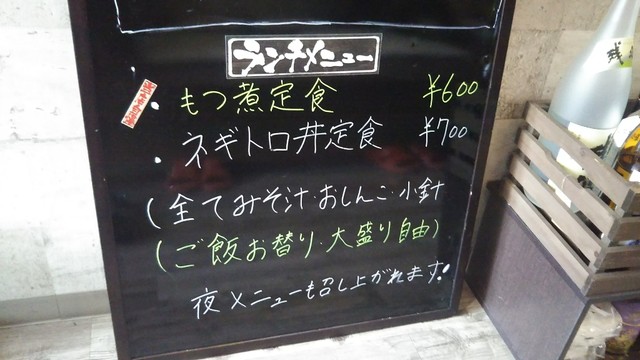 ランチメニュー
・もつ煮定食 ¥600
・ネギトロ丼定食 ¥700
(全てみそ汁・おしんこ・小針
(ご飯お替り・大盛り自由)
夜メニューも召し上がれます!
残